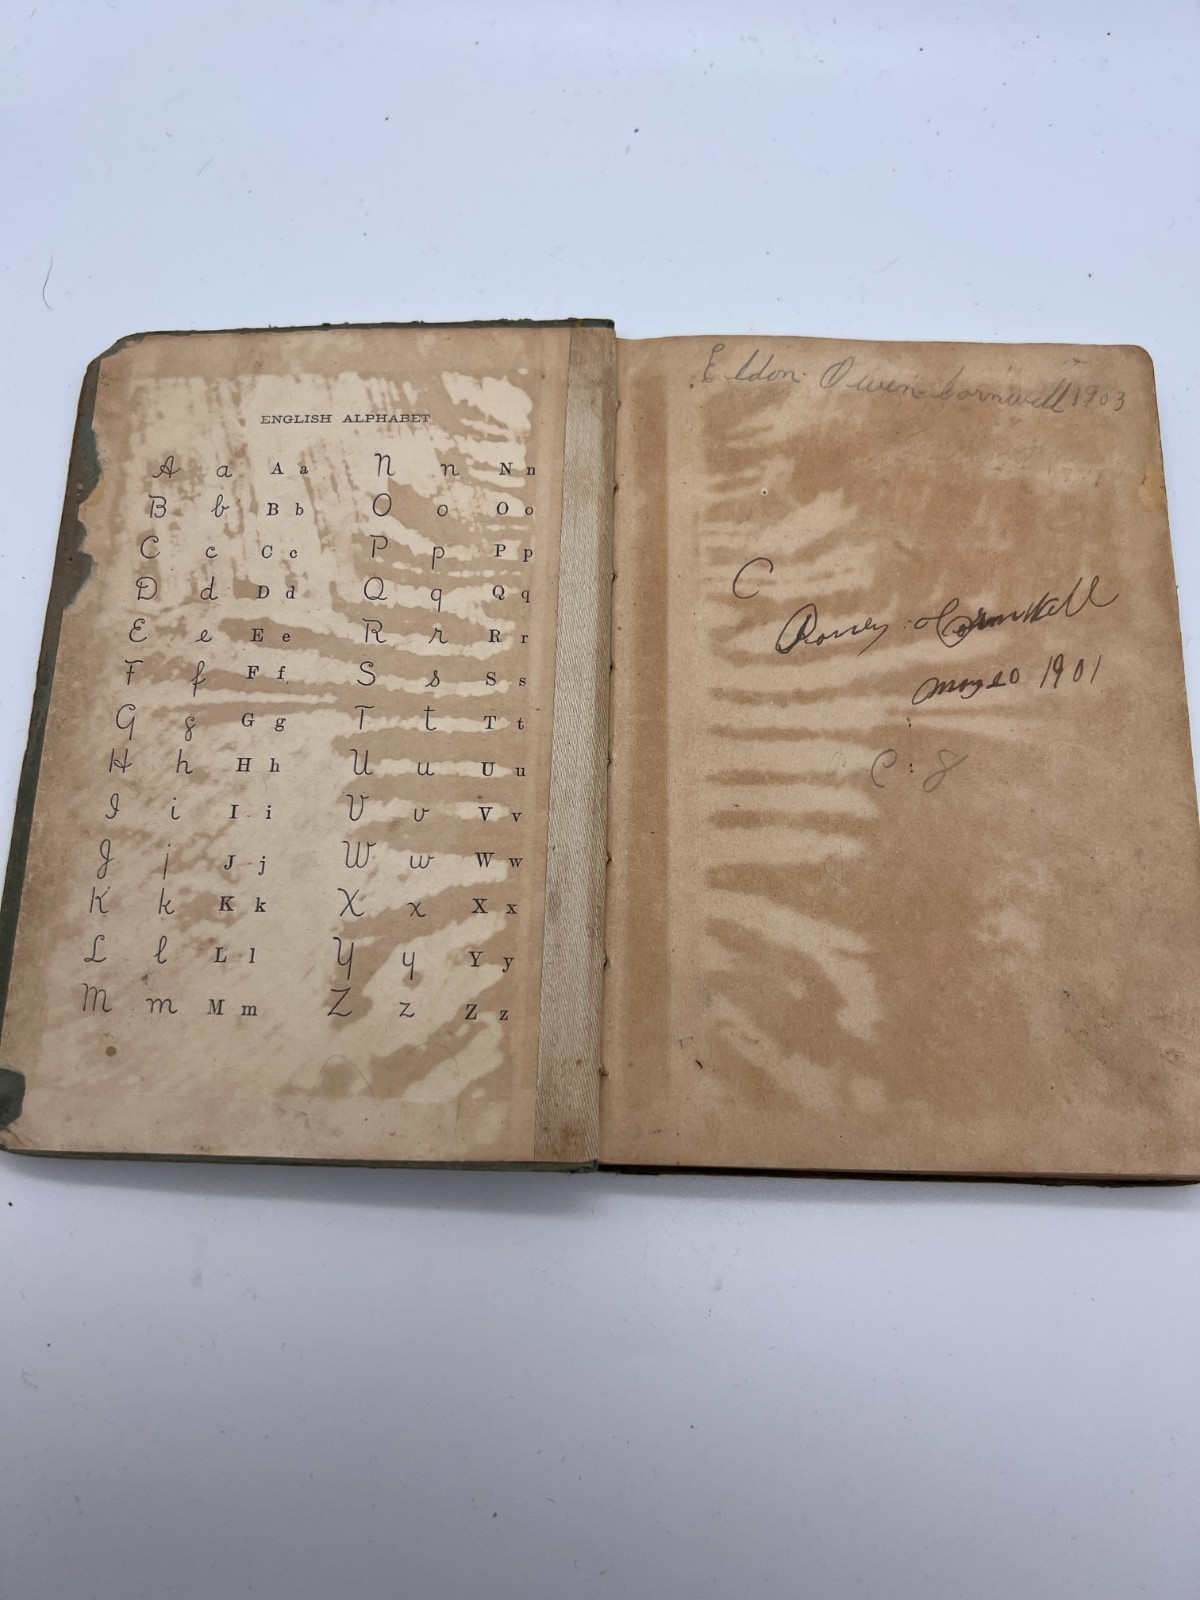 ENGLISH ALPHABET
A a A a N n N n
B b B b O o O o
C c C c P p P p
D d D d Q q Q q
E e E e R r R r
F f F f S s S s
G g G g T t T t
H h H h U u U u
I i I i V v V v
J j J j W w W w
K k K k X x X x
L l L l Y y Y y
M m M m Z z Z z
Eldon Owen Cornwell 1903
C
Cornwell
May 20 1901
C 8